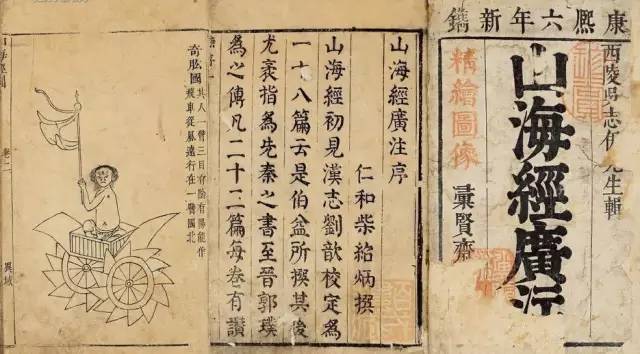 康熙六年新鐫
西陵吳志伊先生輯
山海經廣注
精繪圖像
彚賢齋
山海經廣注序
仁和柴紹炳撰
山海經初見漢志劉歆校定為
一十八篇云是伯益所撰其後
尤袤指為先秦之書至晉郭璞
為之傳凡二十三篇每卷有讚
奇肱國
其人一臂三目有陰有陽能作
飛車從風遠行在一臂國北
卷二
異域